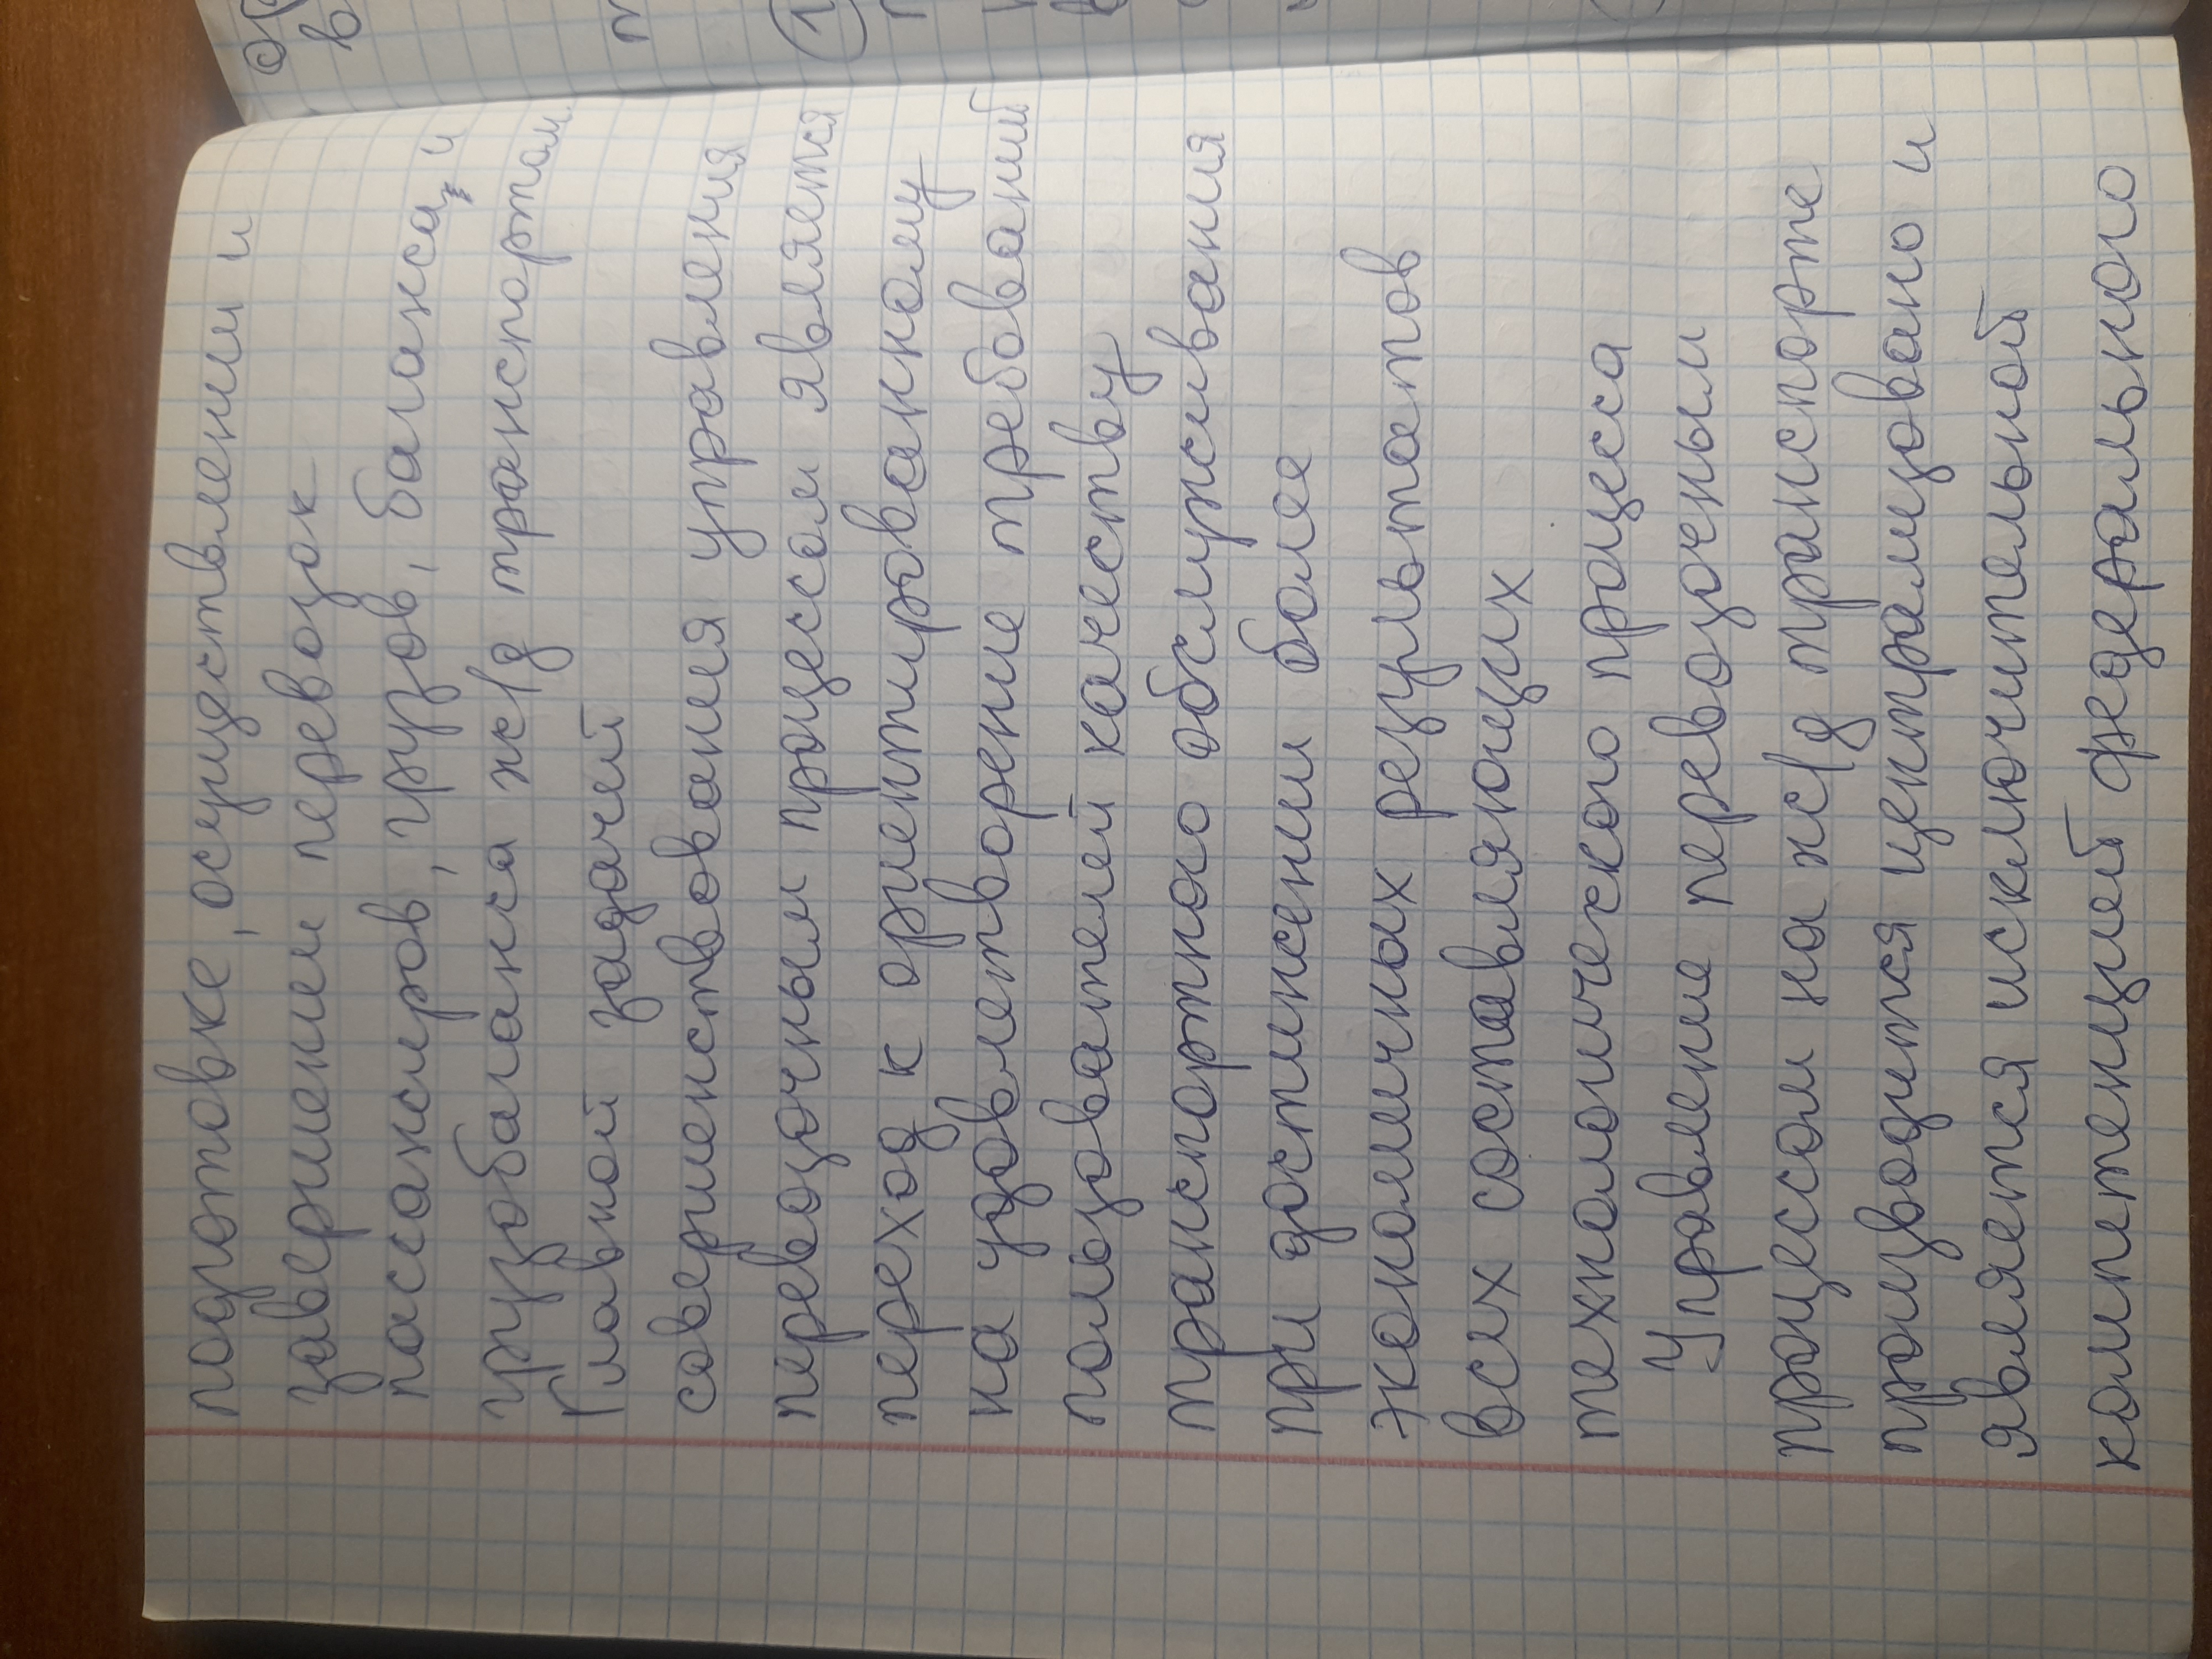 подготовке, осуществлении и
завершении перевозок
пассажиров, грузов, багажа, и
грузобагажа ж/д транспортом.
Главной задачей
совершенствования управления
перевозочным процессом является
переход к ориентированному
на удовлетворение требований
пользователей качеству
транспортного обслуживания
при достижении более
экономичных результатов
всех составляющих
технологического процесса
Управление перевозочным
процессом на ж/д транспорте
производится централизовано и
является исключительной
компетенцией федерального